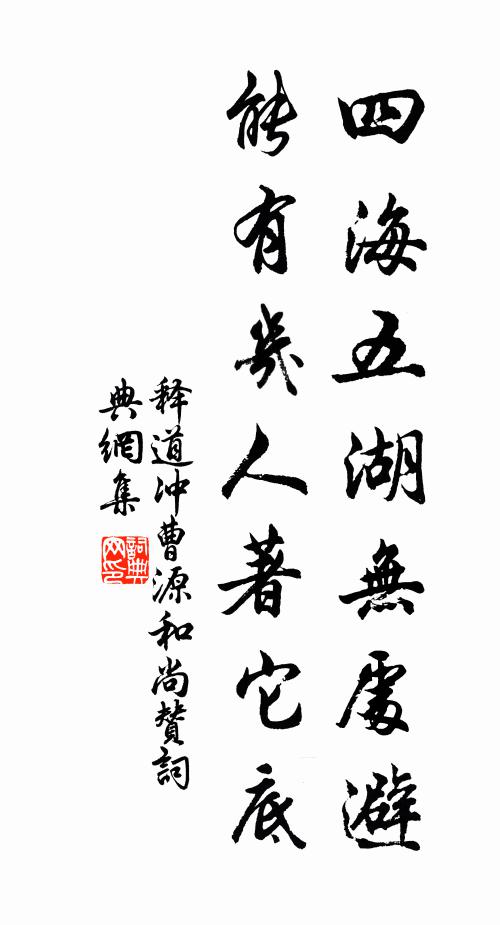 四海五湖無處避
能有幾人著它底
释道冲曹源和尚贊詞
典網集
詞典
网印